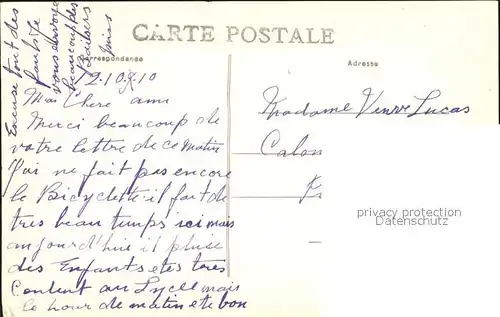 CARTE POSTALE
Correspondance
Adresse
Excuse tout des
fautes
vous envoye
beaucoup des
Baisers
12.10.10
Mon Chere ami
Merci beaucoup de
votre lettre de ce Matin
J'ai ne fait pas encore
le Bicyclette il fait de
tres beau temps ici mais
aujourd'huie il pluise
des Enfants etes tres
Content au Lycee mais
le hour de matin ete bon
Madame Veuve Lucas
Calon
privacy protection
www.ansichtskarten-center.de